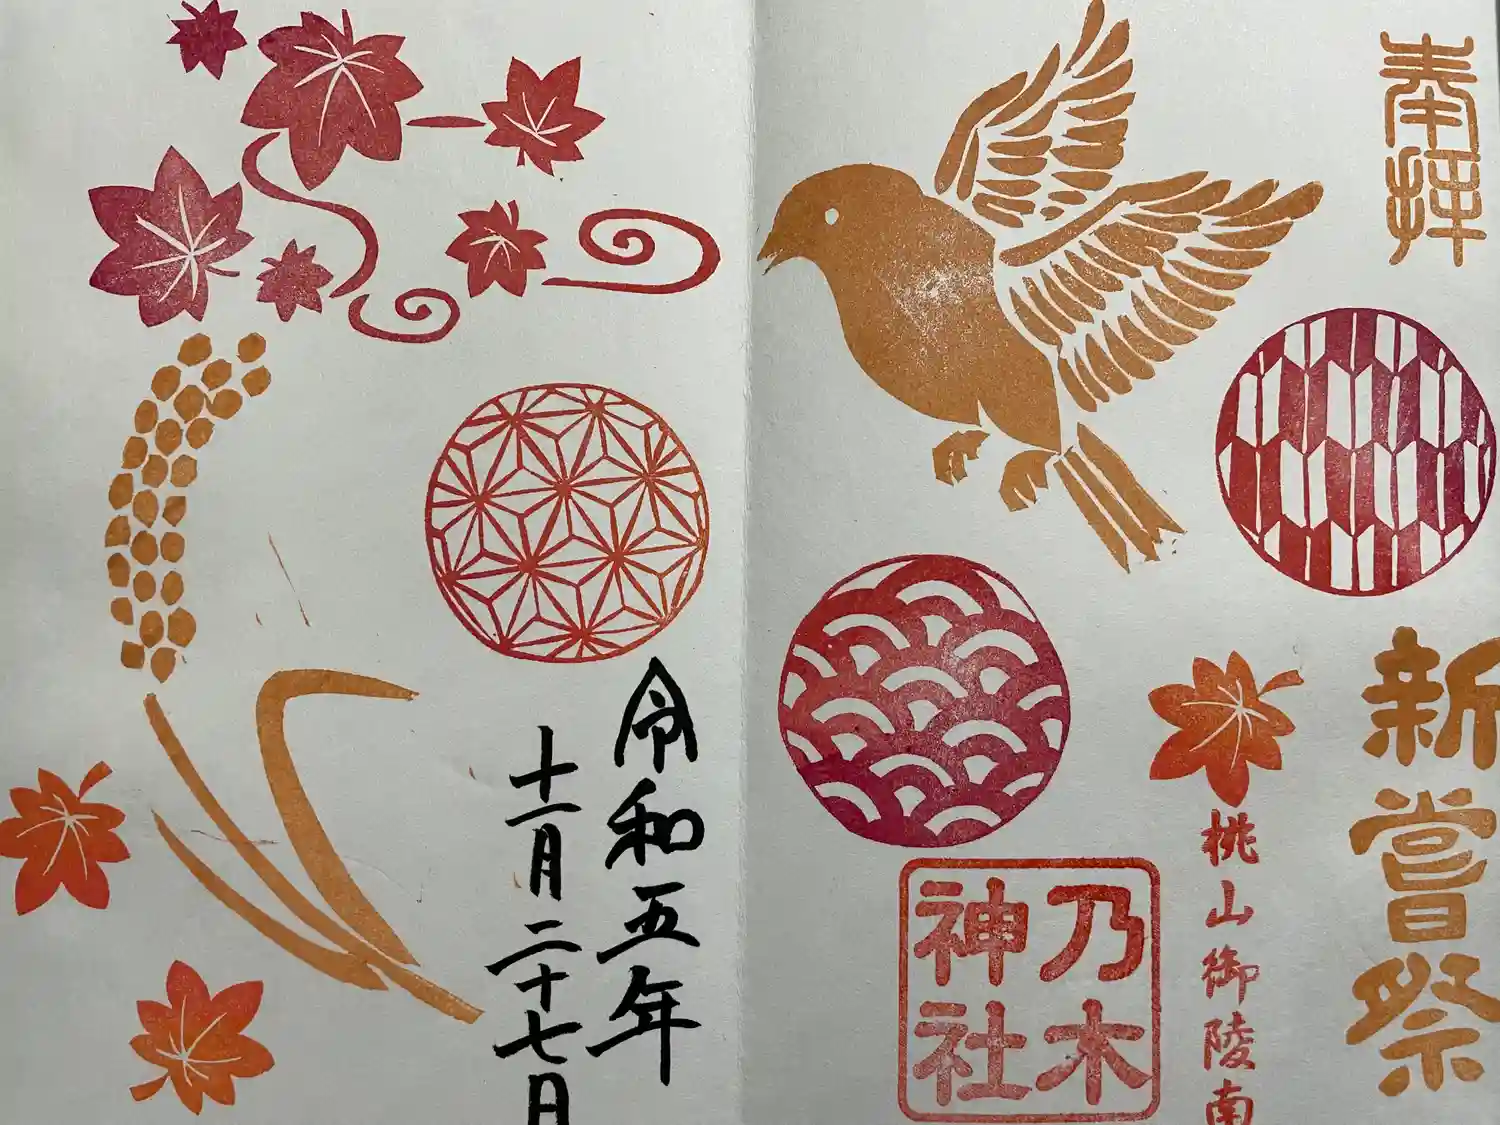 奉拝
新嘗祭
桃山御陵南
乃木
神社
令和五年
十一月二十七日